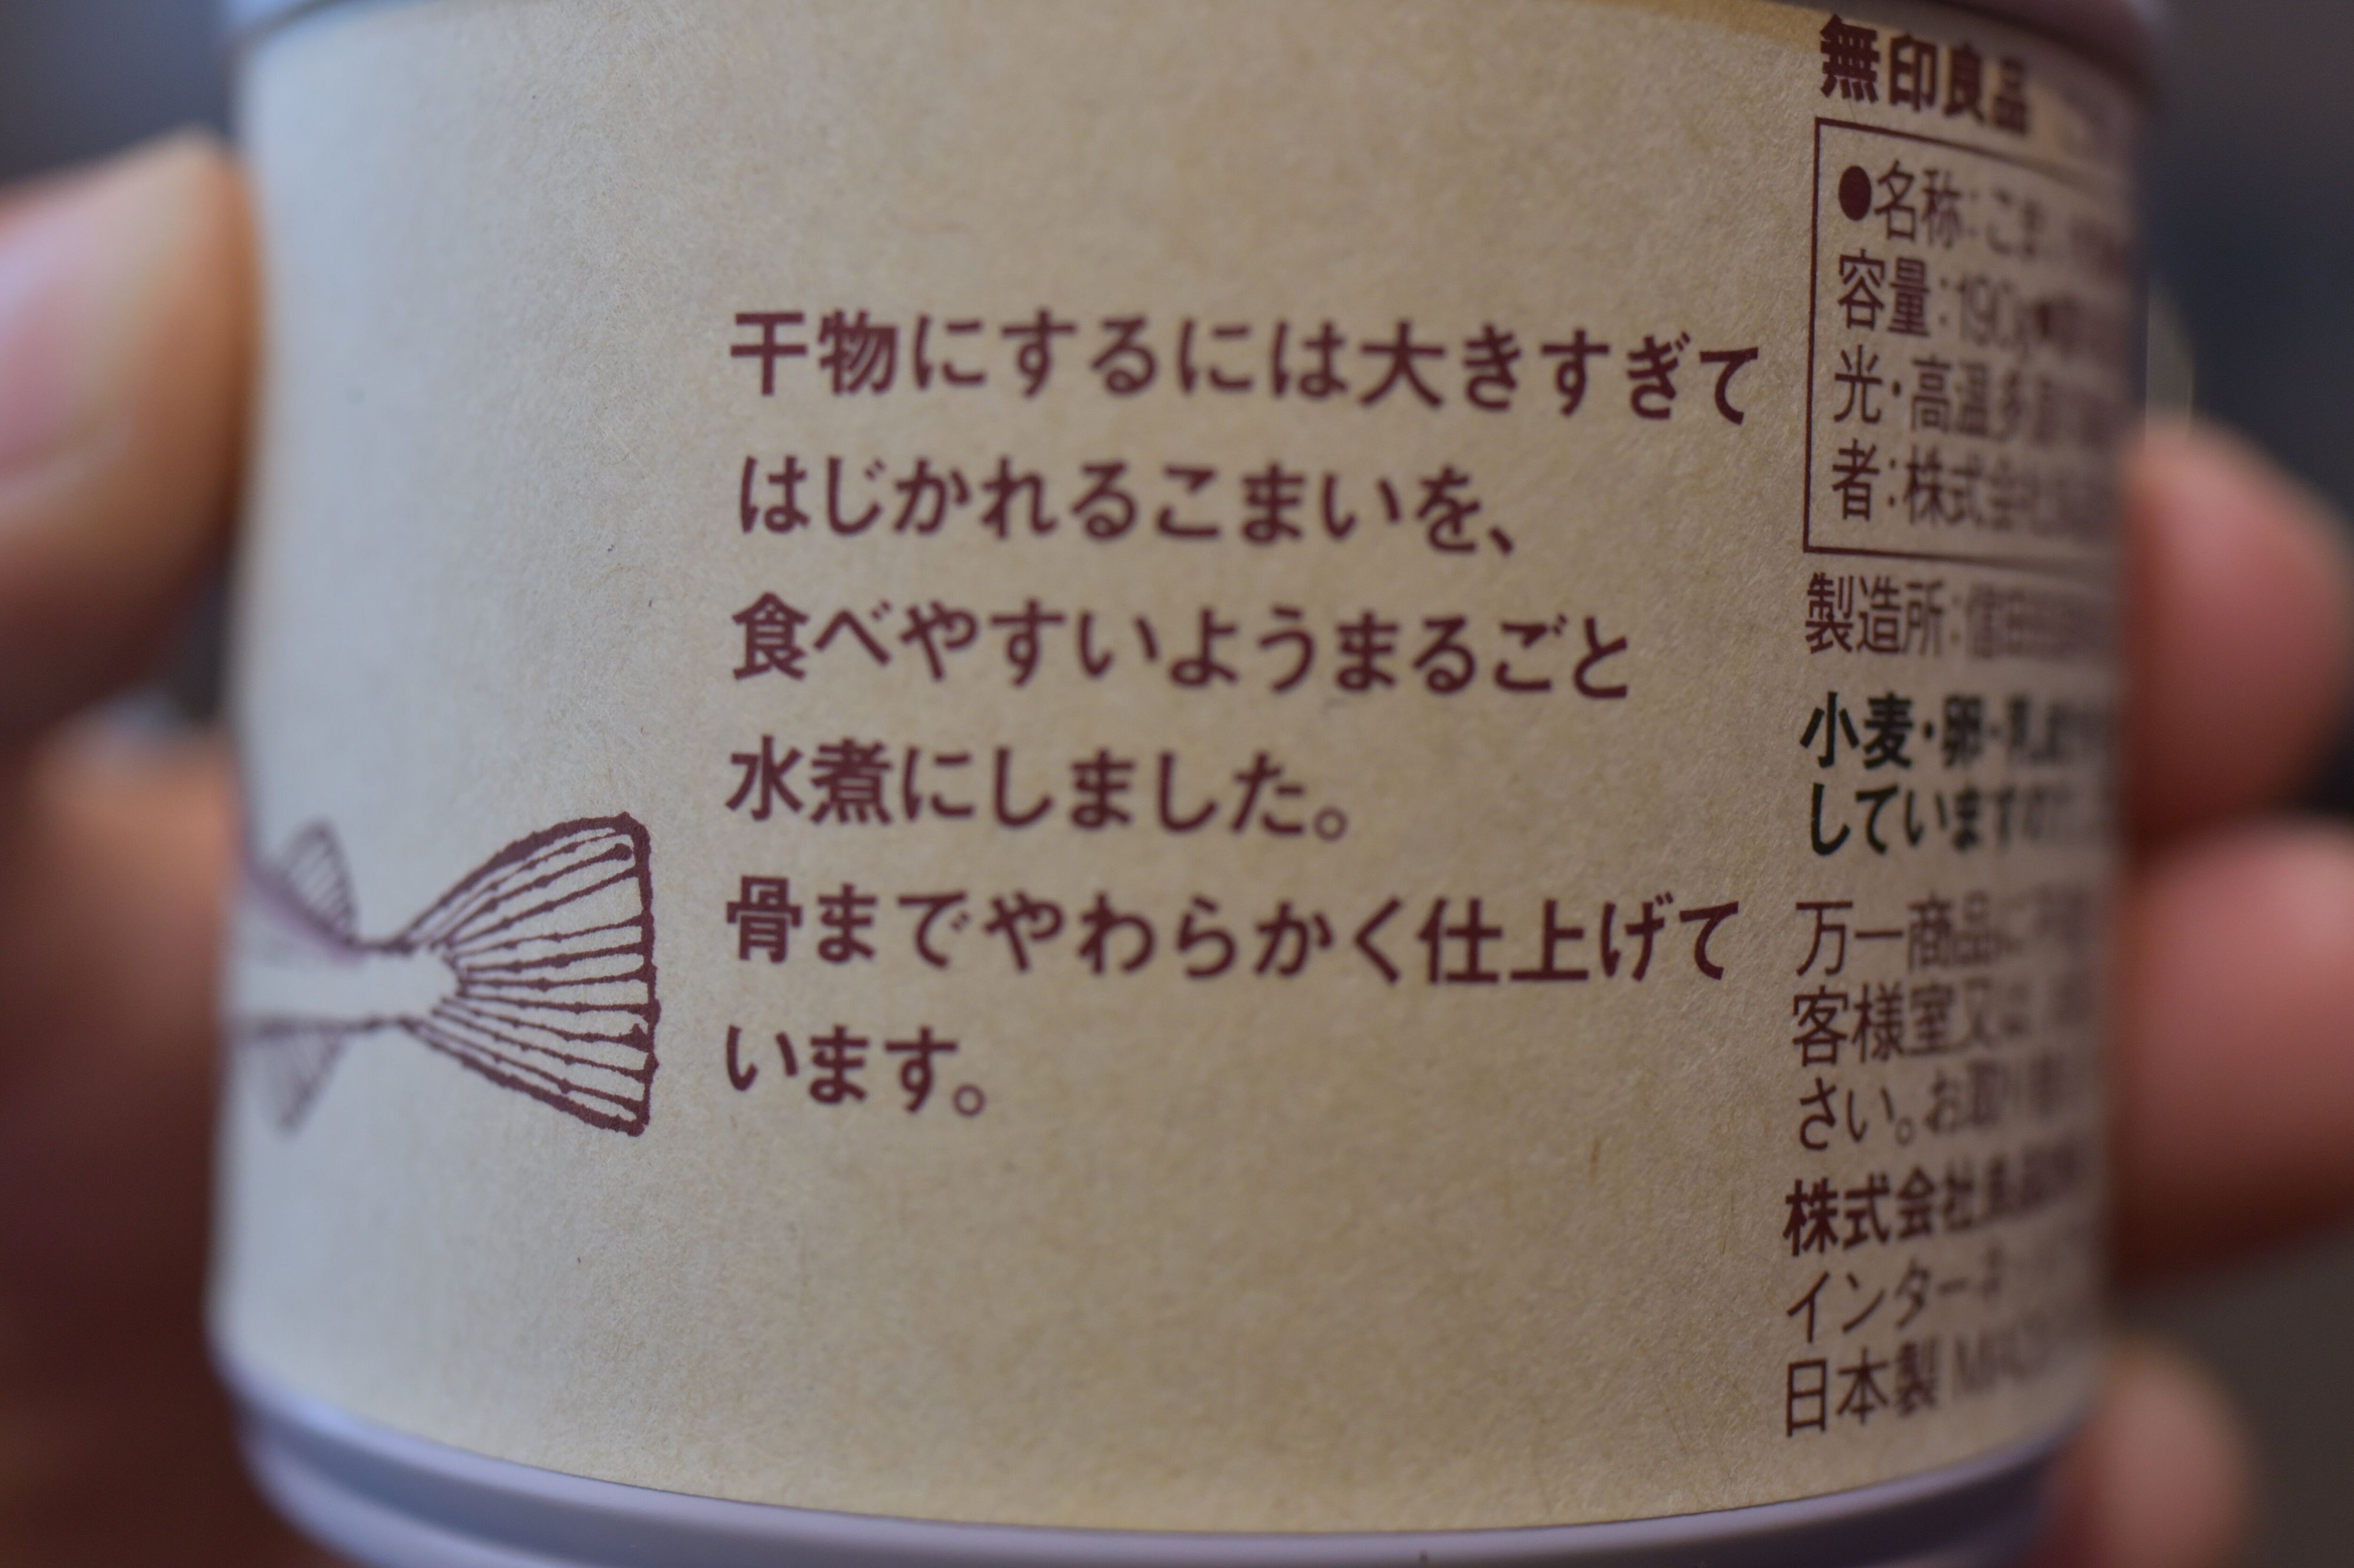 干物にするには大きすぎて
はじかれるこまいを、
食べやすいようまるごと
水煮にしました。
骨までやわらかく仕上げて
います。
無印良品
●名称:こま
容量:190g
光・高温多
者:株式会社
製造所:信田
小麦・卵・乳
していますので
万一商品に
客様室又は
さい。お取り
株式会社良品
インターネ
日本製 MADE